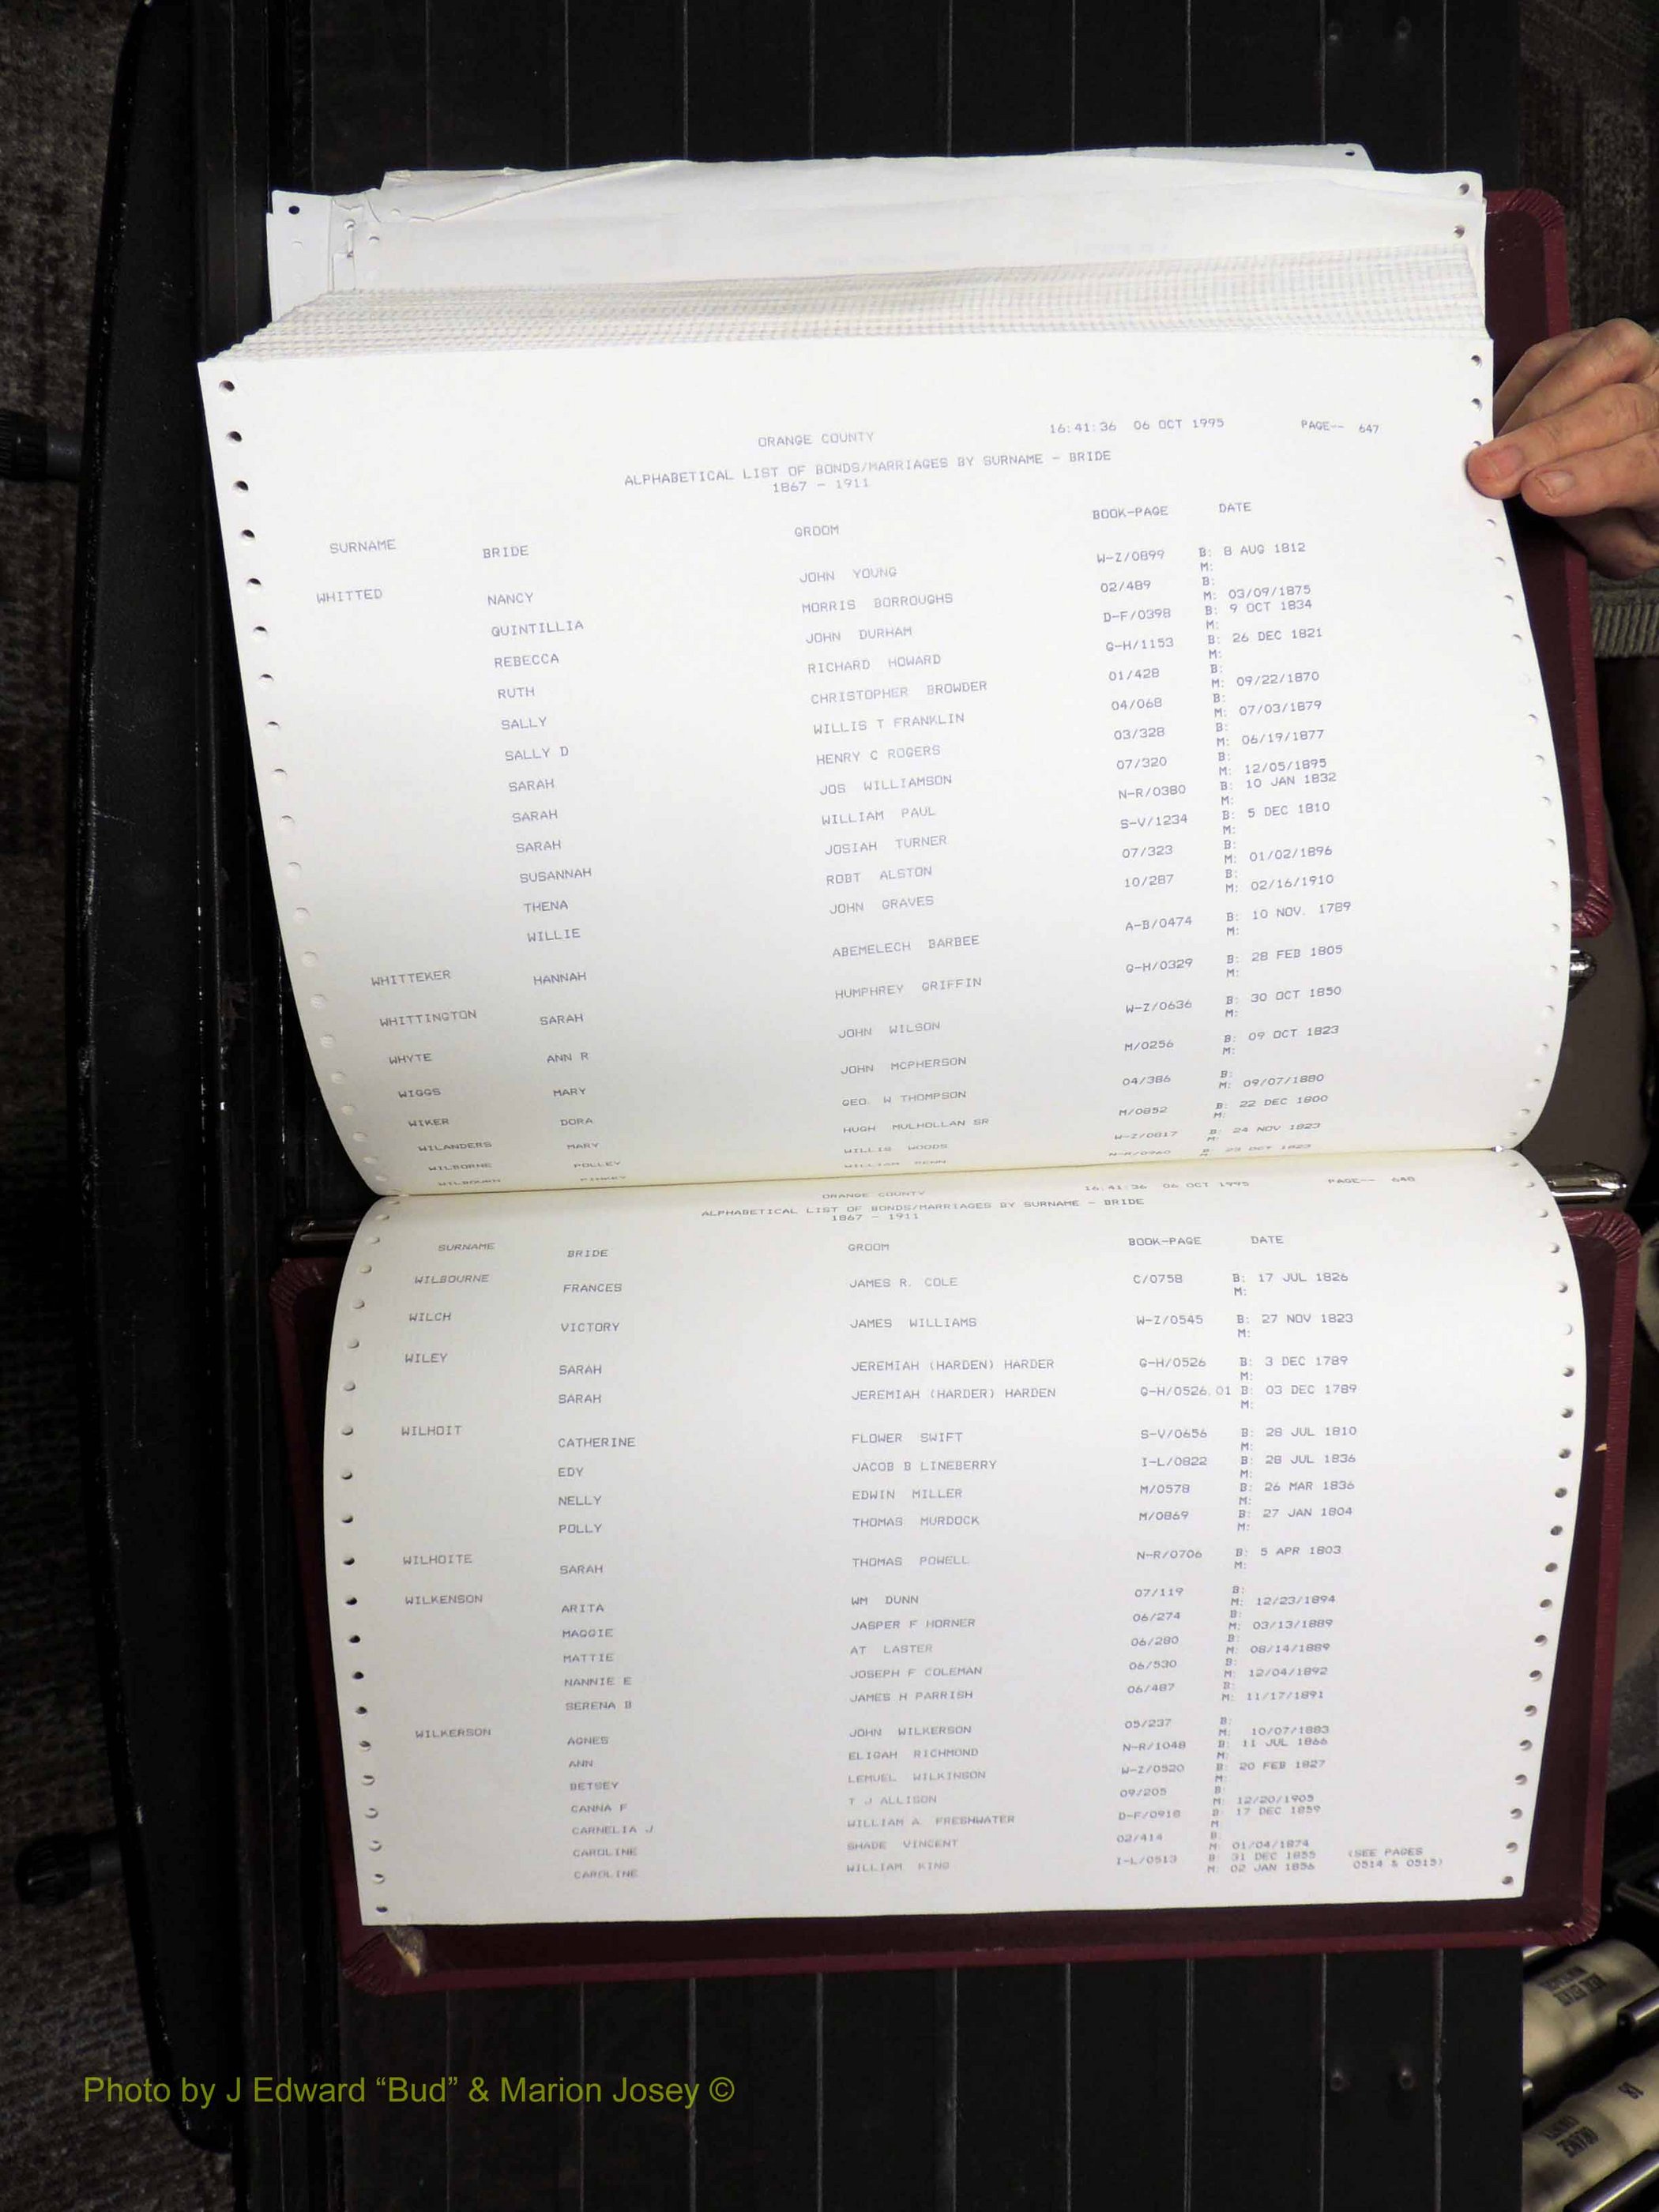 ORANGE COUNTY 16:41:36 06 OCT 1995 PAGE-- 647
ALPHABETICAL LIST OF BONDS/MARRIAGES BY SURNAME - BRIDE
1867 - 1911
SURNAME BRIDE GROOM BOOK-PAGE DATE
WHITTED NANCY JOHN YOUNG W-Z/0899 B: 8 AUG 1812
M:
QUINTILLIA MORRIS BORROUGHS 02/489 B:
M: 03/09/1875
REBECCA JOHN DURHAM D-F/0398 B: 9 OCT 1834
M:
RUTH RICHARD HOWARD G-H/1153 B: 26 DEC 1821
M:
SALLY CHRISTOPHER BROWDER 01/428 B:
M: 09/22/1870
SALLY D WILLIS T FRANKLIN 04/068 B:
M: 07/03/1879
SARAH HENRY C ROGERS 03/328 B:
M: 06/19/1877
SARAH JOS WILLIAMSON 07/320 B:
M: 12/05/1895
SARAH WILLIAM PAUL N-R/0380 B: 10 JAN 1832
M:
SUSANNAH JOSIAH TURNER S-V/1234 B: 5 DEC 1810
M:
THENA ROBT ALSTON 07/323 B:
M: 01/02/1896
WILLIE JOHN GRAVES 10/287 B:
M: 02/16/1910
WHITTEKER HANNAH ABEMELECH BARBEE A-B/0474 B: 10 NOV. 1789
M:
WHITTINGTON SARAH HUMPHREY GRIFFIN G-H/0329 B: 28 FEB 1805
M:
WHYTE ANN R JOHN WILSON W-Z/0636 B: 30 OCT 1850
M:
WIGGS MARY JOHN MCPHERSON M/0256 B: 09 OCT 1823
M:
WIKER DORA GEO. W THOMPSON 04/386 B:
M: 09/07/1880
WILANDERS MARY HUGH MULHOLLAN SR M/0852 B: 22 DEC 1800
M:
WILBORNE POLLEY WILLIS WOODS W-Z/0817 B: 24 NOV 1823
M:
WILBOURN WILLIAM PENN N-R/0960 B: 23 OCT 1823
ORANGE COUNTY 16:41:36 06 OCT 1995 PAGE-- 648
ALPHABETICAL LIST OF BONDS/MARRIAGES BY SURNAME - BRIDE
1867 - 1911
SURNAME BRIDE GROOM BOOK-PAGE DATE
WILBOURNE FRANCES JAMES R. COLE C/0758 B: 17 JUL 1826
M:
WILCH VICTORY JAMES WILLIAMS W-Z/0545 B: 27 NOV 1823
M:
WILEY SARAH JEREMIAH (HARDEN) HARDER G-H/0526 B: 3 DEC 1789
M:
SARAH JEREMIAH (HARDER) HARDEN G-H/0526.01 B: 03 DEC 1789
M:
WILHOIT CATHERINE FLOWER SWIFT S-V/0656 B: 28 JUL 1810
M:
EDY JACOB B LINEBERRY I-L/0822 B: 28 JUL 1836
M:
NELLY EDWIN MILLER M/0578 B: 26 MAR 1836
M:
POLLY THOMAS MURDOCK M/0869 B: 27 JAN 1804
M:
WILHOITE SARAH THOMAS POWELL N-R/0706 B: 5 APR 1803
M:
WILKENSON ARITA WM DUNN 07/119 B:
M: 12/23/1894
MAGGIE JASPER F HORNER 06/274 B:
M: 03/13/1889
MATTIE AT LASTER 06/280 B:
M: 08/14/1889
NANNIE E JOSEPH F COLEMAN 06/530 B:
M: 12/04/1892
SERENA B JAMES H PARRISH 06/487 B:
M: 11/17/1891
WILKERSON AGNES JOHN WILKERSON 05/237 B:
M: 10/07/1883
ANN ELIGAH RICHMOND N-R/1048 B: 11 JUL 1866
M:
BETSEY LEMUEL WILKINSON W-Z/0520 B: 20 FEB 1827
M:
CANNA F T J ALLISON 09/205 B:
M: 12/20/1905
CARNELIA J WILLIAM A. FRESHWATER D-F/0918 B: 17 DEC 1859
M
CAROLINE SHADE VINCENT 02/414 B:
M 01/04/1874
CAROLINE WILLIAM KING I-L/0513 B 31 DEC 1855 (SEE PAGES
M: 02 JAN 1856 0514 & 0515)
Photo by J Edward “Bud” & Marion Josey ©